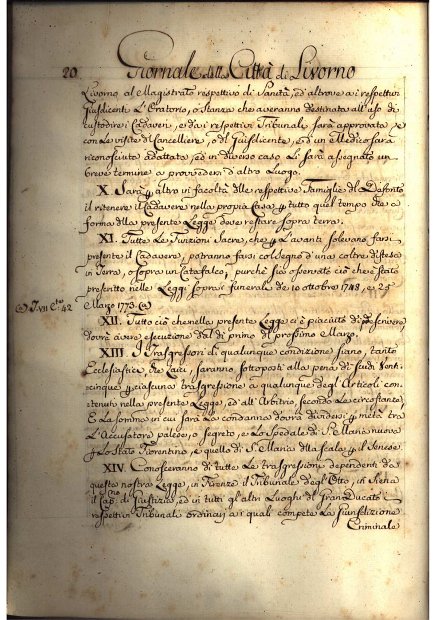 20 Giornale della Città di Livorno
Livorno al Magistrato respettivo di Sanità, ed altrove a i respettivi
Giusdicenti L'Oratorio, o Stanza che averanno destinata all'uso di
custodire i Cadaveri, e da i respettivi Tribunali sarà approvata, e
con Le visite del Cancelliere, o del Giusdicente, ed un Medico sarà
riconosciuta adattata, ed in diverso caso Li sarà assegnato un
breve termine a provvedersi d'altro Luogo.
X. Sarà altro in facoltà delle respettive Famiglie del Defonto
il ritenere il Cadavere nella propria Casa tutto quel tempo che a
forma della presente Legge deve restare sopra terra.
XI. Tutte Le Funzioni Sacre, che L'avanti solevano farsi
presente il Cadavere, potranno farsi col segno d'una coltre distesa
in Terra, o sopra un Catafalco, purchè sia osservato ciò che è stato
prescritto nelle Leggi sopra i funerali de 10 ottobre 1748, e 25
Marzo 1773. (a)
(a) T. VII C. 42
XII. Tutto ciò che nella presente Legge ci è piaciuto di prescrivere
dovrà avere esecuzione dal dì primo del prossimo Marzo.
XIII. I Trasgressori di qualunque condizione siano, tanto
Ecclesiastici, che Laici, saranno sottoposti alla pena di scudi Venti-
cinque ciascuna trasgressione a qualunque degl'Articoli con-
tenuto nella presente Legge, ed all'Arbitrio secondo Le circostanze,
E La somma in cui sarà La condanna dovrà dividersi metà tra
L'Accusatore palese, o segreto, e Lo Spedale di S. Maria nuova
Lo Stato Fiorentino, e quello di S. Maria della Scala il Senese.
XIV. Conosceranno di tutte Le trasgressioni dependenti da
questa nostra Legge, in Firenze il Tribunale degl'Otto, in Siena
il di Giustizia, ed in tutti gl'altri Luoghi del Gran Ducato i
respettivi Tribunali ordinarj a i quali compete La Giurisdizione
Criminale